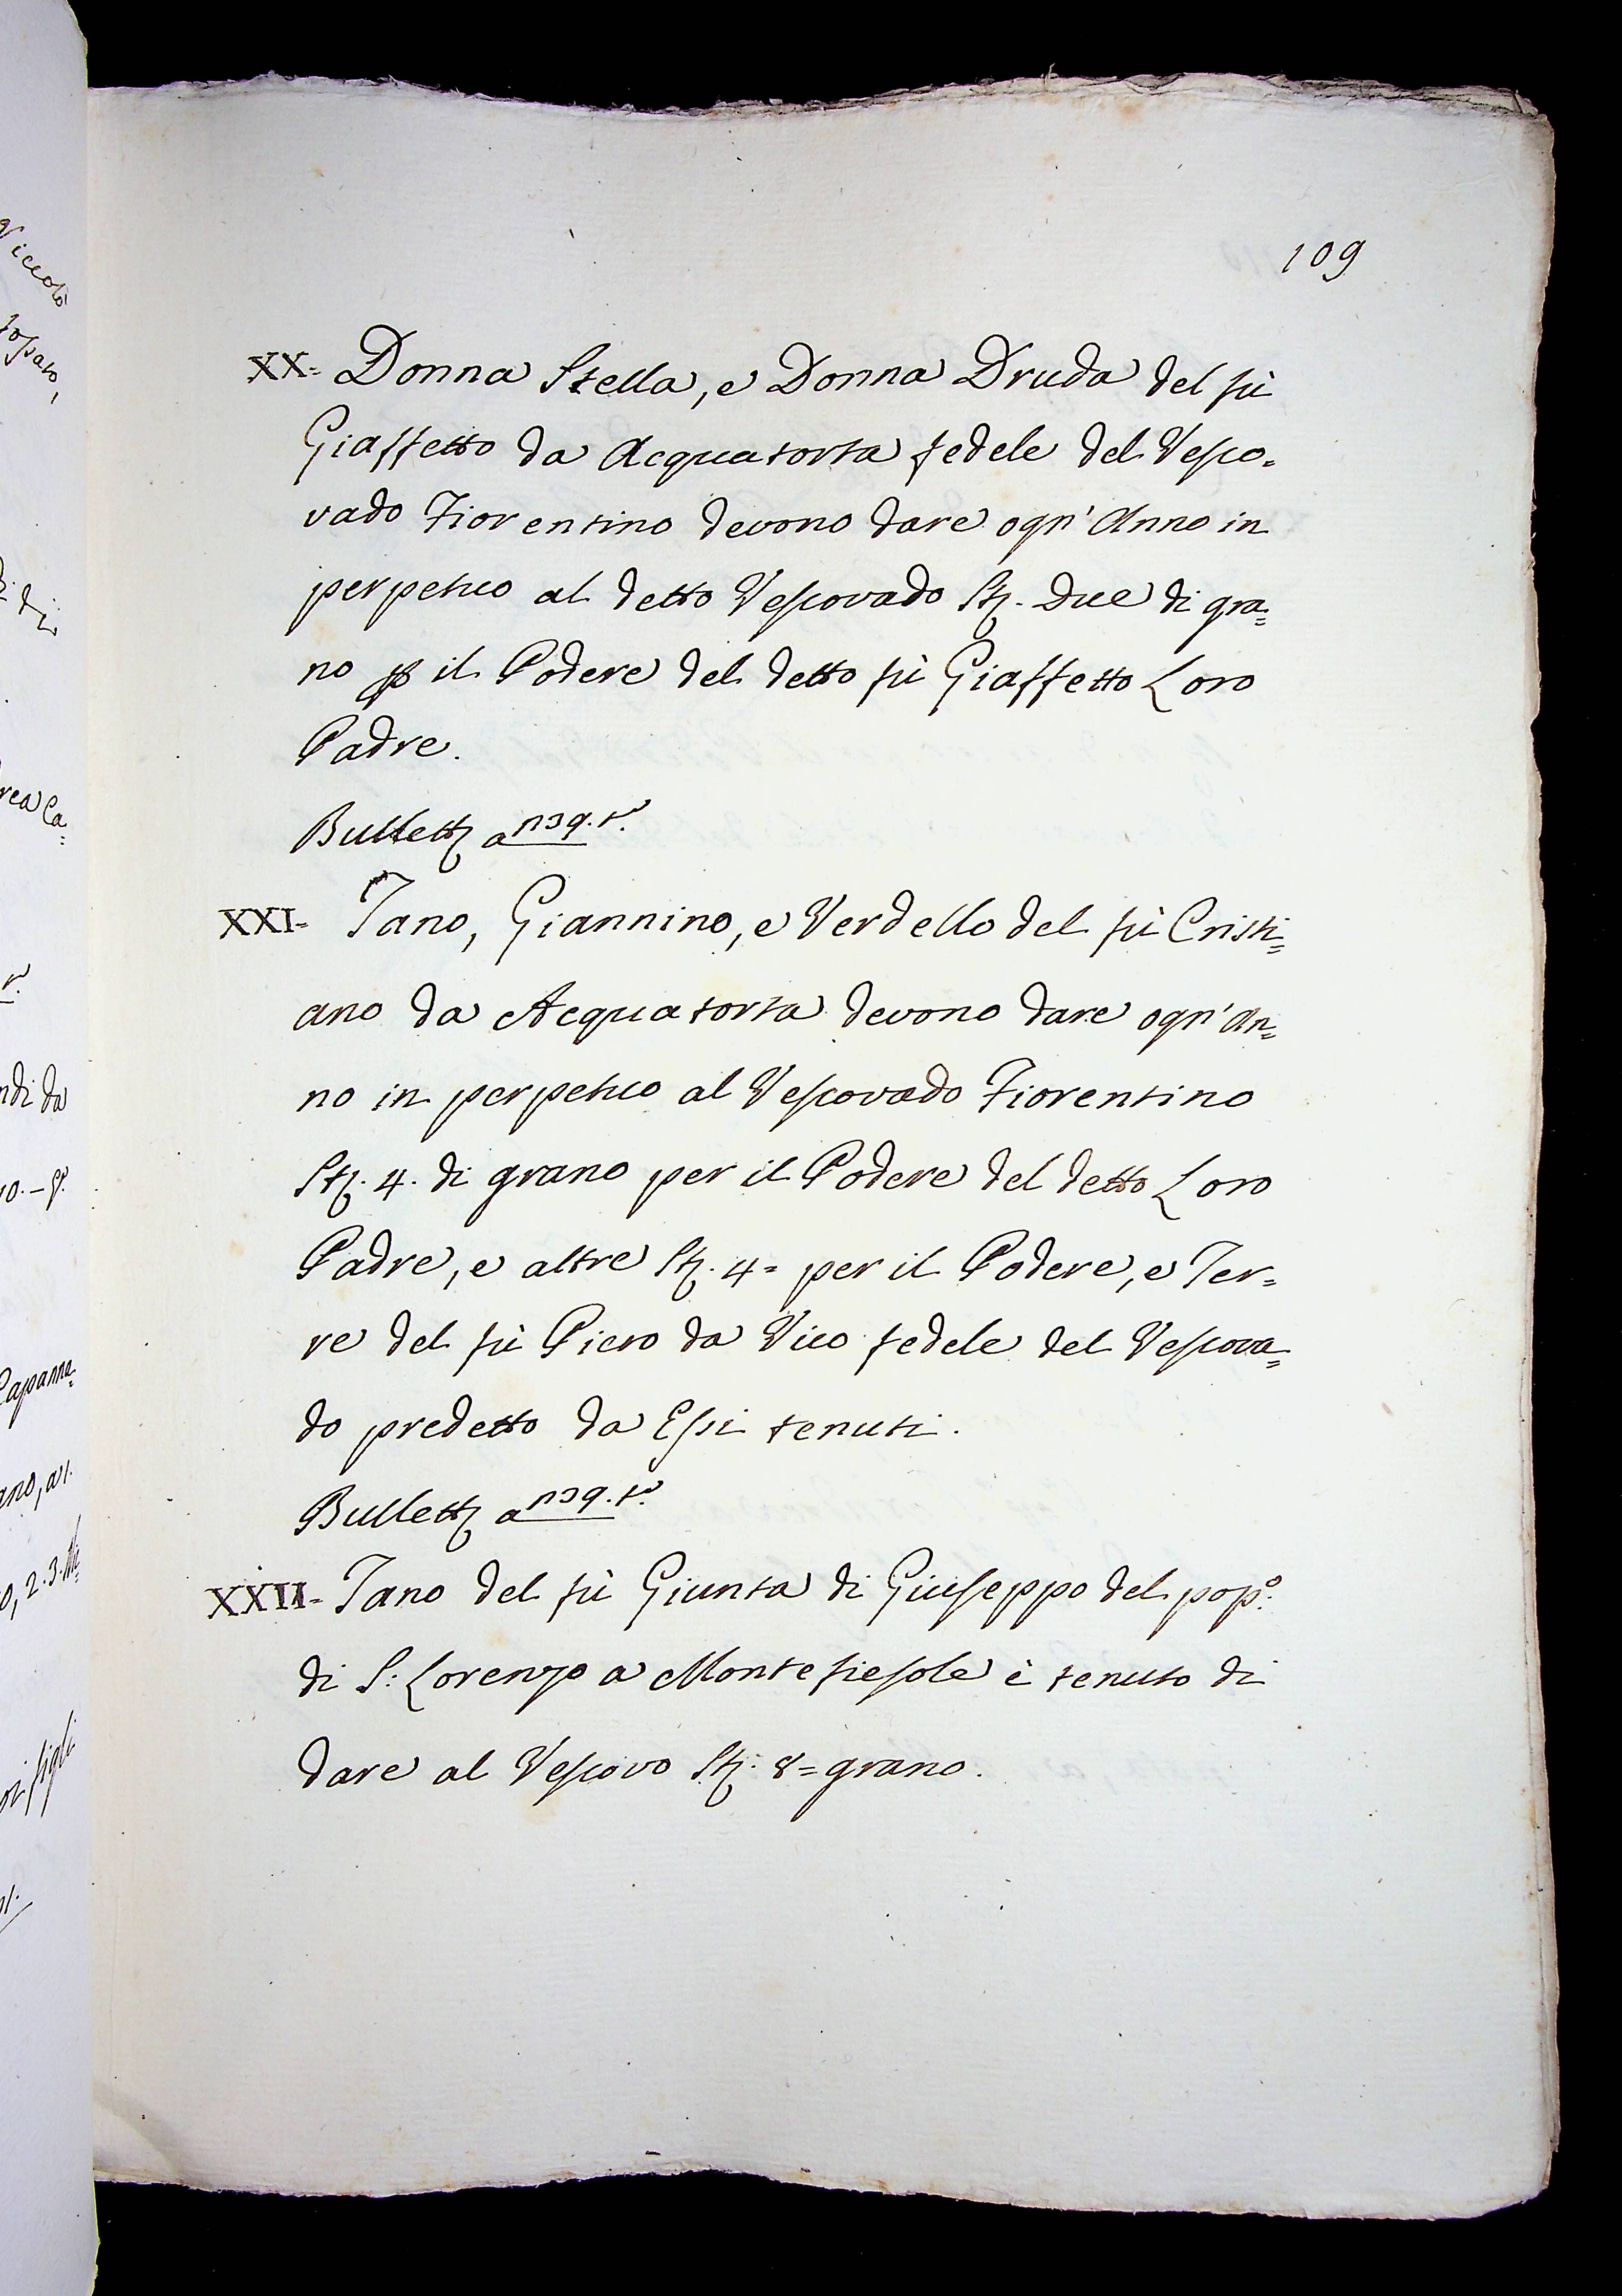 109
XX- Donna Stella, e Donna Druda del fù
Giaffetto da Acquatorta fedele del Vesco=
vado Fiorentino devono dare ogn' Anno in
perpetuo al detto Vescovado Stj. Due di gra=
no p il Podere del detto fù Giaffetto Loro
Padre.
Bullett a
XXI- Tano, Giannino, e Verdello del fù Cristi=
ano da Acquatorta devono dare ogn' An=
no in perpetuo al Vescovado Fiorentino
Stj. 4. di grano per il Podere del detto Loro
Padre, e altre Stj. 4= per il Podere, e Ter=
re del fù Piero da Vico fedele del Vescova=
do predetto da Essi tenuti.
Bullett a
XXII- Tano del fù Giunta di Giuseppo del pop.º
di S: Lorenzo a Montefiesole è tenuto di
dare al Vescovo Stj. 8= grano.